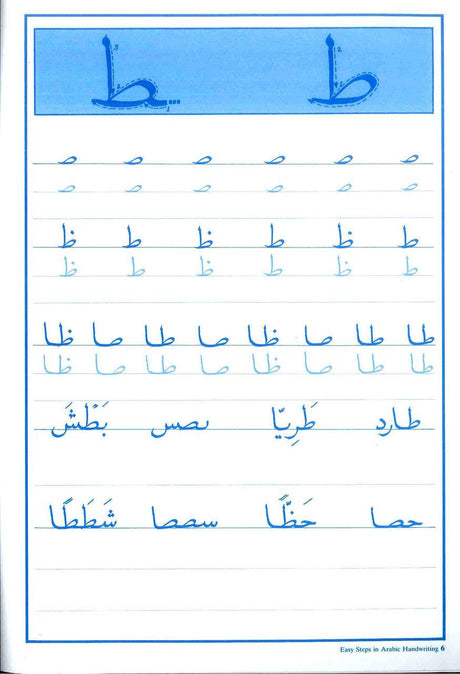 ط طـ
صـ صـ صـ صـ صـ صـ
صـ صـ صـ صـ صـ صـ
ط ظ ط ظ ط ظ
ط ظ ط ظ ط ظ
طا طا صا ظا صا طا صا ظا
طا طا صا ظا صا طا صا ظا
طارد طَرِيّا ىصس بَطْشَ
حصا حَظًّا سصصا شَطَطًا
Easy Steps in Arabic Handwriting 6